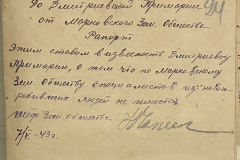 До Дмитриевской Примарии
от Марковского Зем. Общества
Рапорт
Этим ставим в известность Дмитриевску
Примарию, о том что по Марковскому
Зем. Обществу специалистов
людей не имеется
Зем. общества
7/V-43 г.